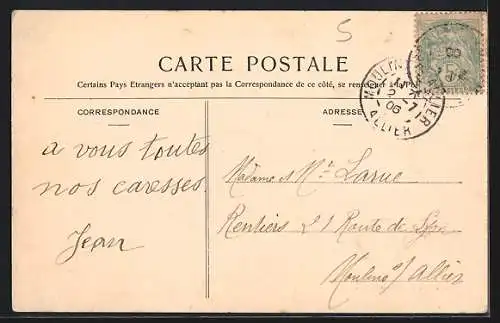 5
CARTE POSTALE
Certains Pays Etrangers n'acceptant pas la Correspondance de ce côté, se renseigner à la
CORRESPONDANCE
ADRESSE
MOULINS
ALLIER
à vous toutes
nos caresses
Jean
Madame et Mr Larue
Rentiers 21 Route de Lyon
Moulins s/ Allier